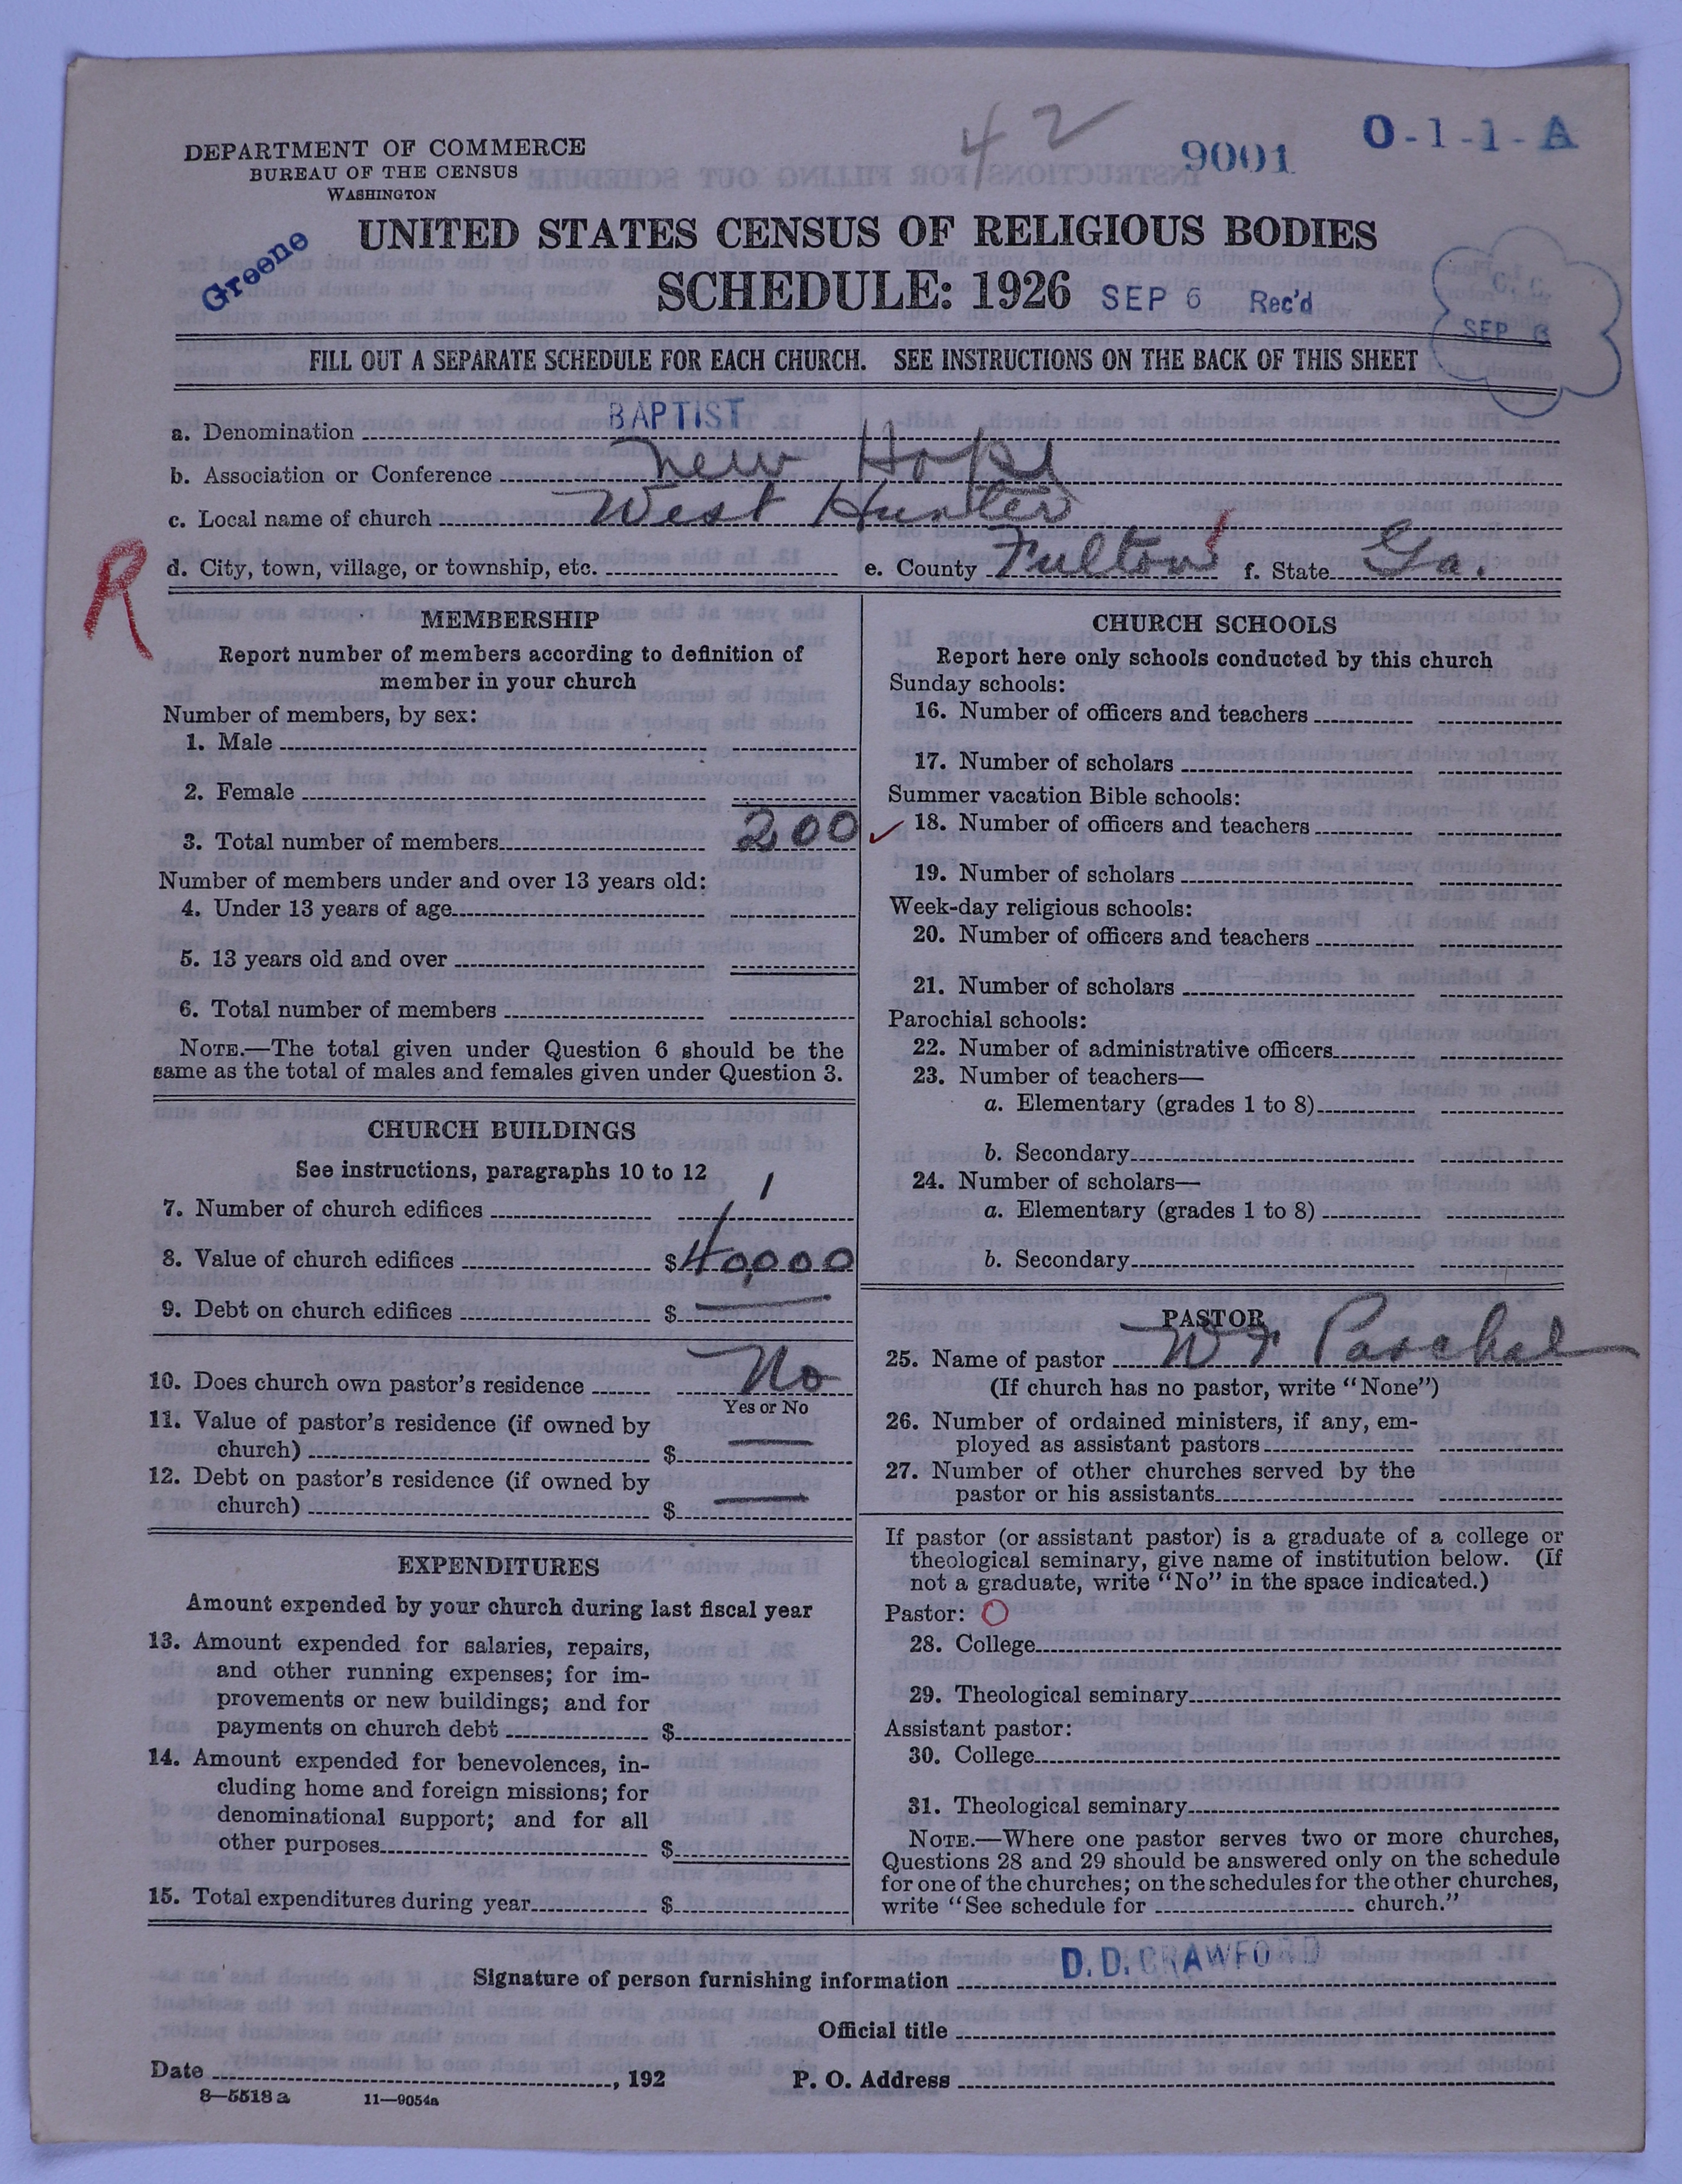 42
9001
O-1-1-A
DEPARTMENT OF COMMERCE
BUREAU OF THE CENSUS
WASHINGTON
Greene
UNITED STATES CENSUS OF RELIGIOUS BODIES
SCHEDULE: 1926 SEP 6 Rec'd
C. C.
SEP 6
FILL OUT A SEPARATE SCHEDULE FOR EACH CHURCH. SEE INSTRUCTIONS ON THE BACK OF THIS SHEET
a. Denomination BAPTIST
b. Association or Conference New Hope
c. Local name of church West Hunter
R
d. City, town, village, or township, etc. e. County Fulton f. State Ga.
MEMBERSHIP
Report number of members according to definition of
member in your church
Number of members, by sex:
1. Male
2. Female
3. Total number of members 200
Number of members under and over 13 years old:
4. Under 13 years of age
5. 13 years old and over
6. Total number of members
NOTE.—The total given under Question 6 should be the
same as the total of males and females given under Question 3.
CHURCH BUILDINGS
See instructions, paragraphs 10 to 12
7. Number of church edifices 1
8. Value of church edifices $40,000
9. Debt on church edifices $ —
10. Does church own pastor's residence No
Yes or No
11. Value of pastor's residence (if owned by
church) $ —
12. Debt on pastor's residence (if owned by
church) $ —
EXPENDITURES
Amount expended by your church during last fiscal year
13. Amount expended for salaries, repairs,
and other running expenses; for im-
provements or new buildings; and for
payments on church debt $
14. Amount expended for benevolences, in-
cluding home and foreign missions; for
denominational support; and for all
other purposes $
15. Total expenditures during year $
CHURCH SCHOOLS
Report here only schools conducted by this church
Sunday schools:
16. Number of officers and teachers
17. Number of scholars
Summer vacation Bible schools:
18. Number of officers and teachers
19. Number of scholars
Week-day religious schools:
20. Number of officers and teachers
21. Number of scholars
Parochial schools:
22. Number of administrative officers
23. Number of teachers—
a. Elementary (grades 1 to 8)
b. Secondary
24. Number of scholars—
a. Elementary (grades 1 to 8)
b. Secondary
PASTOR
25. Name of pastor W
(If church has no pastor, write "None")
26. Number of ordained ministers, if any, em-
ployed as assistant pastors
27. Number of other churches served by the
pastor or his assistants
If pastor (or assistant pastor) is a graduate of a college or
theological seminary, give name of institution below. (If
not a graduate, write "No" in the space indicated.)
Pastor: O
28. College
29. Theological seminary
Assistant pastor:
30. College
31. Theological seminary
NOTE.—Where one pastor serves two or more churches,
Questions 28 and 29 should be answered only on the schedule
for one of the churches; on the schedules for the other churches,
write "See schedule for church."
Signature of person furnishing information D. D. CRAWFORD
Official title
Date , 192 P. O. Address
8—5518 a 11—9054a